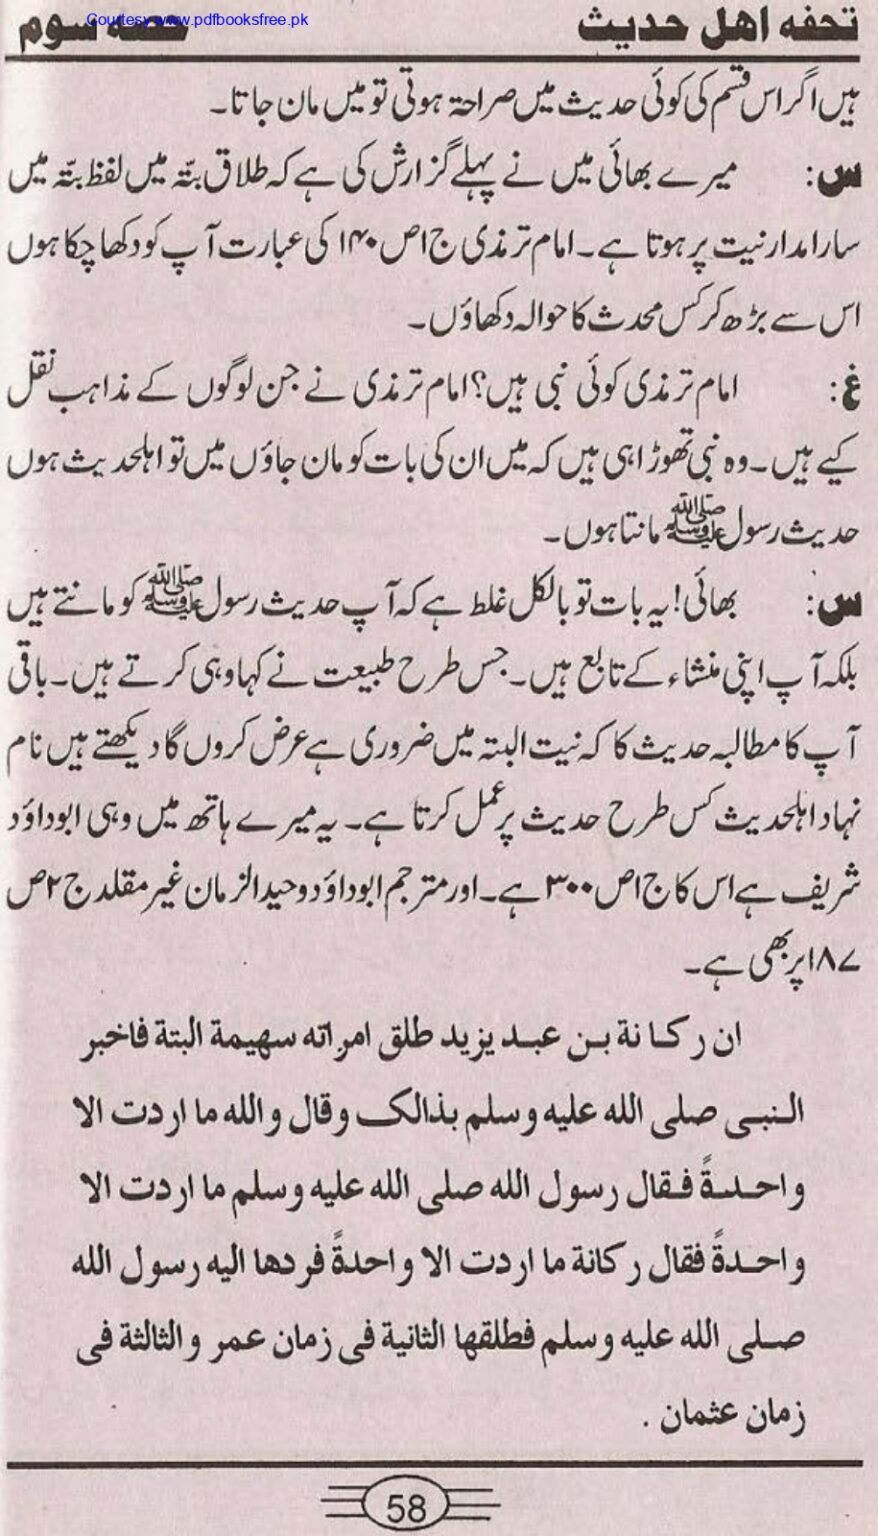 تحفہ اہل حدیث حصہ سوم
Courtesy www.pdfbooksfree.pk
ہیں اگر اس قسم کی کوئی حدیث میں صراحۃ ہوتی تو میں مان جاتا۔
س: میرے بھائی میں نے پہلے گزارش کی ہے کہ طلاق بتّہ میں لفظ بتّہ میں
سارا مدار نیت پر ہوتا ہے۔ امام ترمذی ج۱ص۱۴۰ کی عبارت آپ کو دکھا چکا ہوں
اس سے بڑھ کر کس محدث کا حوالہ دکھاؤں۔
غ: امام ترمذی کوئی نبی ہیں؟ امام ترمذی نے جن لوگوں کے مذاہب نقل
کیے ہیں۔ وہ نبی تھوڑا ہی ہیں کہ میں ان کی بات کو مان جاؤں میں تو اہلحدیث ہوں
حدیث رسول ﷺ مانتا ہوں۔
س: بھائی! یہ بات تو بالکل غلط ہے کہ آپ حدیث رسول ﷺ کو مانتے ہیں
بلکہ آپ اپنی منشاء کے تابع ہیں۔ جس طرح طبیعت نے کہا وہی کرتے ہیں۔ باقی
آپ کا مطالبہ حدیث کا کہ نیت البتہ میں ضروری ہے عرض کروں گا دیکھتے ہیں نام
نہاد اہلحدیث کس طرح حدیث پر عمل کرتا ہے۔ یہ میرے ہاتھ میں وہی ابوداؤد
شریف ہے اس کا ج۱ص۳۰۰ ہے۔ اور مترجم ابوداؤد وحیدالزمان غیر مقلد ج۲ص
۱۸۷ پر بھی ہے۔
ان رکانة بن عبد یزید طلق امراته سهیمة البتة فاخبر
النبی صلی الله علیه وسلم بذالک وقال والله ما اردت الا
واحدةً فقال رسول الله صلی الله علیه وسلم ما اردت الا
واحدةً فقال رکانة ما اردت الا واحدةً فردها الیه رسول الله
صلی الله علیه وسلم فطلقها الثانیة فی زمان عمر والثالثة فی
زمان عثمان .
58